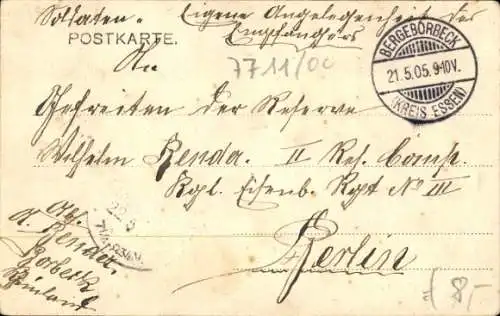 Soldaten- Eigene Angelegenheit des
Empfängers
POSTKARTE.
BERGEBORBECK
21.5.05. 9-10V.
(KREIS ESSEN)
An
7711/00
Gefreiten der Reserve
Wilhelm Renda. II Res. Comp.
Kgl. Eisenb. Rgt No III
Berlin
Abs.
A. Renda.
Borbeck
Rheinland
22.5
8,-